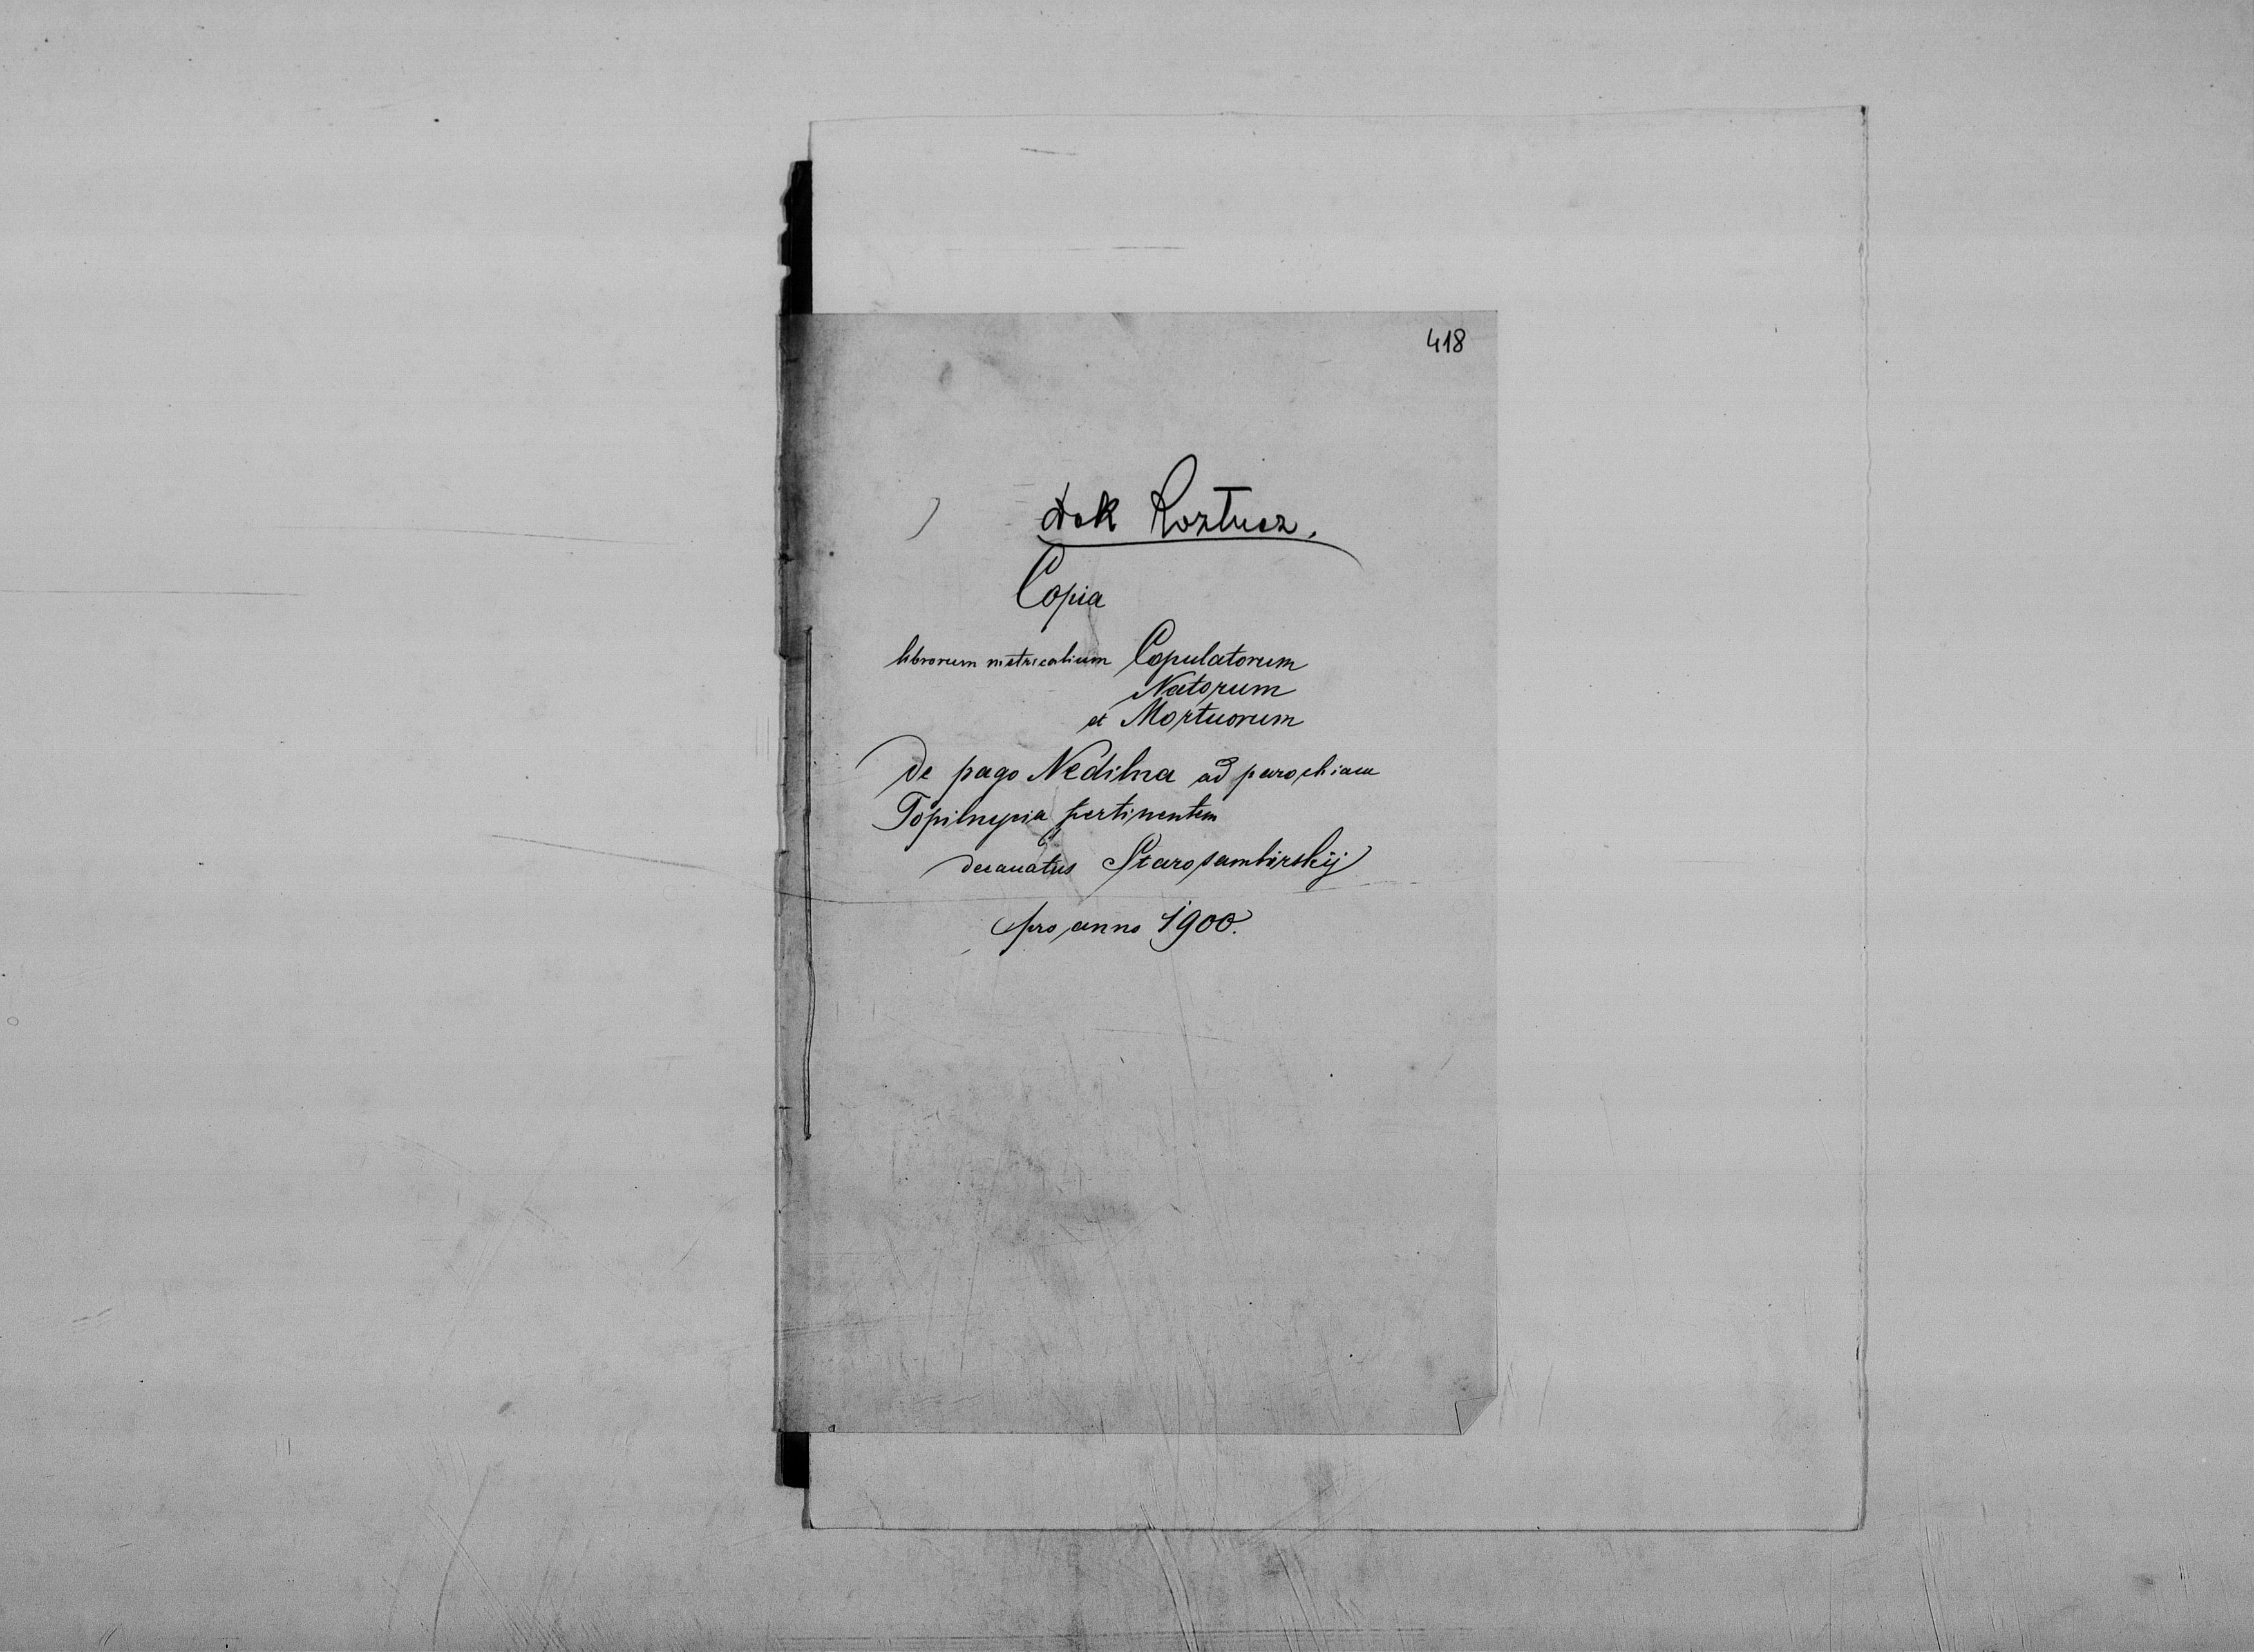 418
dek Roztucz.
Copia
librorum metricalium Copulatorum
Natorum
et Mortuorum
de pago Nedilna ad parochiam
Topilnycia pertinentem
decanatus Starosambirskij
pro anno 1900.